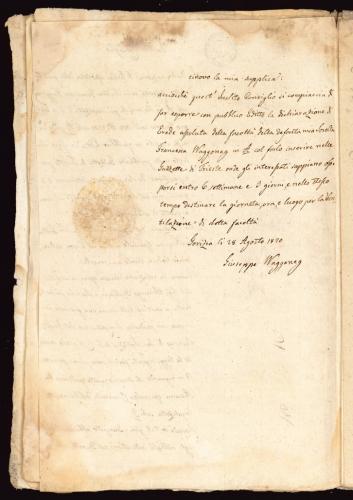 rinovo la mia supplica:
acciochè quest' Inclito Consiglio si compiaccia di
far esporre con publico Editto la dichiarazione di
Erede assoluta della facoltà della defonta mia Sorella
Francesca Waggonag col farlo inserire nelle
Gazzette di Trieste onde gli interessati sappiano op
porsi entro 6 settimane e 3 giorni, e nello stesso
tempo destinare la giornata, ora, e luogo per la Ven
tilazione di detta facoltà
Gorizia li 28 Agosto 1820
Giuseppe Waggonag